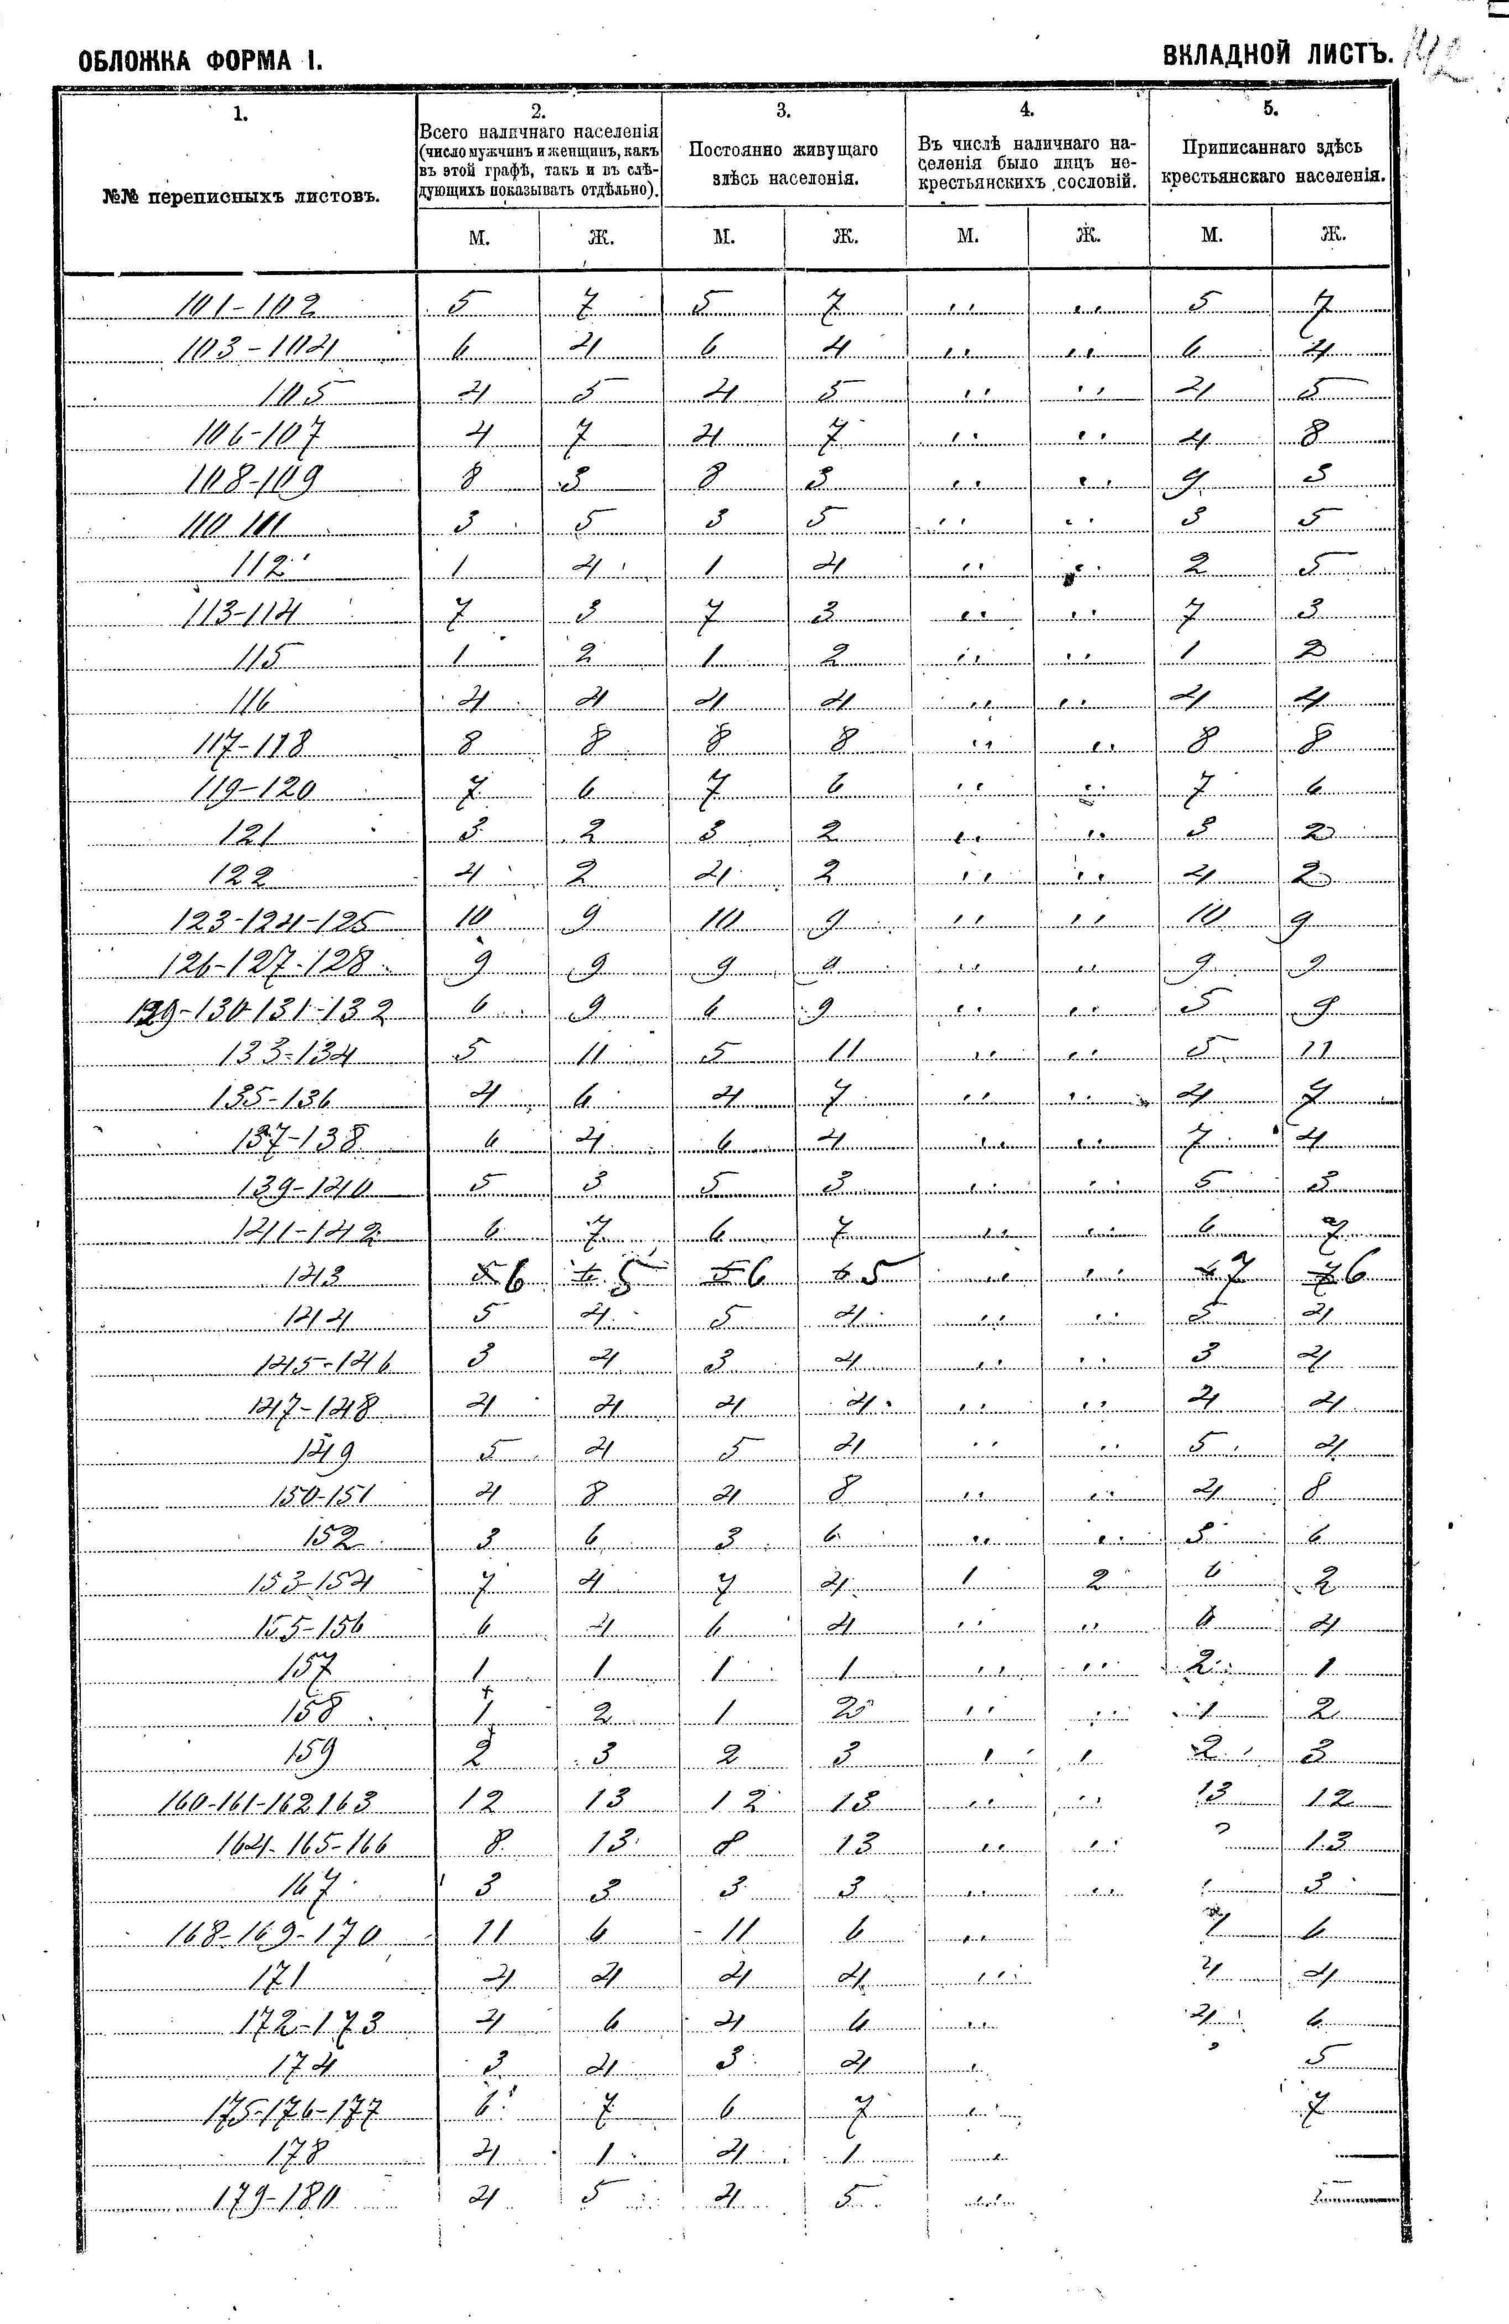 ОБЛОЖКА ФОРМА I. ВКЛАДНОЙ ЛИСТЪ. 142
1. 2. 3. 4. 5.
№№ переписныхъ листовъ.
Всего наличнаго населенія
(число мужчинъ и женщинъ, какъ
въ этой графѣ, такъ и въ слѣ-
дующихъ показывать отдѣльно).
Постоянно живущаго
здѣсь населенія.
Въ числѣ наличнаго на-
селенія было лицъ не-
крестьянскихъ сословій.
Приписаннаго здѣсь
крестьянскаго населенія.
М. Ж. М. Ж. М. Ж. М. Ж.
101-102 5 7 5 7 " " 5 7
103-104 6 4 6 4 " " 6 4
105 4 5 4 5 " " 4 5
106-107 4 7 4 7 " " 4 8
108-109 8 3 8 3 " " 9 3
110 111 3 5 3 5 " " 3 5
112 1 4 1 4 " " 2 5
113-114 7 3 7 3 " " 7 3
115 1 2 1 2 " " 1 2
116 4 4 4 4 " " 4 4
117-118 8 8 8 8 " " 8 8
119-120 7 6 7 6 " " 7 6
121 3 2 3 2 " " 3 2
122 4 2 4 2 " " 4 2
123-124-125 10 9 10 9 " " 10 9
126-127-128 9 9 9 9 " " 9 9
129-130-131-132 6 9 6 9 " " 5 9
133-134 5 11 5 11 " " 5 11
135-136 4 6 4 7 " " 4 7
137-138 6 4 6 4 " " 7 4
139-140 5 3 5 3 " " 5 3
141-142 6 7 6 7 " " 6 7
143 5 6 6 5 5 6 6 5 " " 7 7 6
144 5 4 5 4 " " 5 4
145-146 3 4 3 4 " " 3 4
147-148 4 4 4 4 " " 4 4
149 5 4 5 4 " " 5 4
150-151 4 8 4 8 " " 4 8
152 3 6 3 6 " " 3 6
153-154 7 4 7 4 1 2 6 2
155-156 6 4 6 4 " " 6 4
157 1 1 1 1 " " 2 1
158 1 2 1 2 " " 1 2
159 2 3 2 3 " 1 2 3
160-161-162 163 12 13 12 13 " " 13 12
164-165-166 8 13 8 13 " " 13
167 3 3 3 3 " " 3
168-169-170 11 6 11 6 " 7 6
171 4 4 4 4 " 4 4
172-173 4 6 4 6 " 4 6
174 3 4 3 4 " 5
175-176-177 6 7 6 7 " 7
178 4 1 4 1 "
179-180 4 5 4 5 "